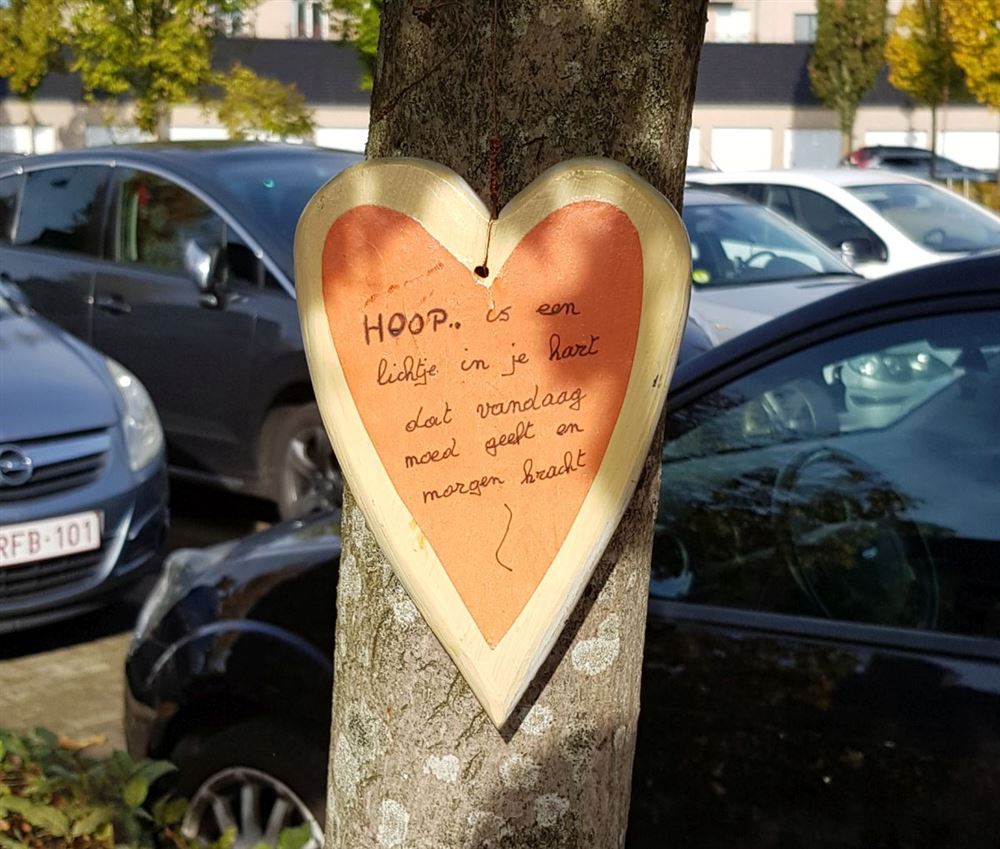 HOOP.. is een
lichtje in je hart
dat vandaag
moed geeft en
morgen kracht
RFB-101